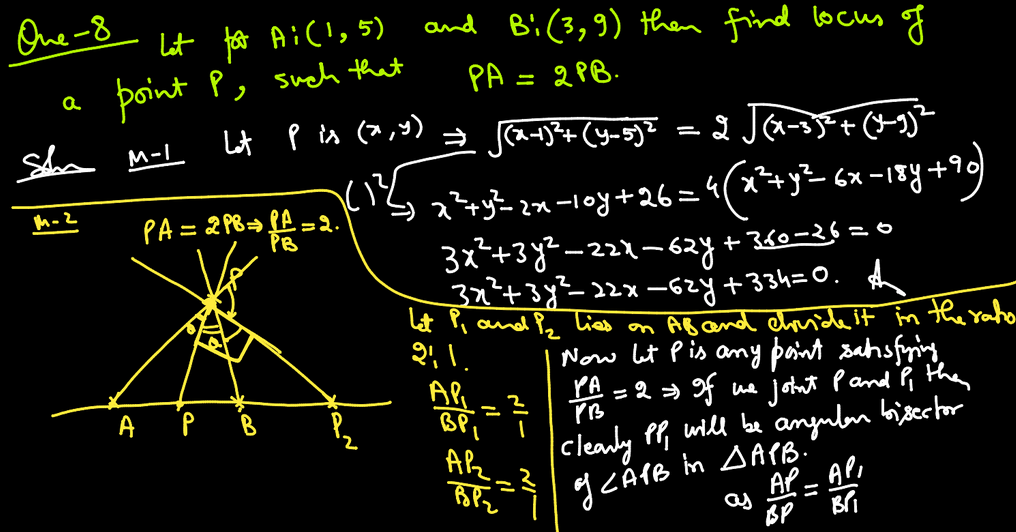 Que-8 Let A:(1,5) and B:(3,9) then find locus of
a point P, such that PA = 2PB.
Soln M-1 Let P is (x,y) ⇒ √((x-1)²+(y-5)²) = 2√((x-3)²+(y-9)²)
( )² ⇒ x²+y²-2x-10y+26 = 4(x²+y²-6x-18y+90)
3x²+3y²-22x-62y+360-26=0
3x²+3y²-22x-62y+334=0. A
M-2
PA = 2PB ⇒ PA/PB = 2.
P
θ θ
A P B P₂
Let P₁ and P₂ lies on AB and divide it in the ratio
2:1.
AP₁/BP₁ = 2/1
AP₂/BP₂ = 2/1
Now let P is any point satisfying
PA/PB = 2 ⇒ If we joint P and P₁ then
clearly PP₁ will be angular bisector
of ∠APB in △APB.
as AP/BP = AP₁/BP₁